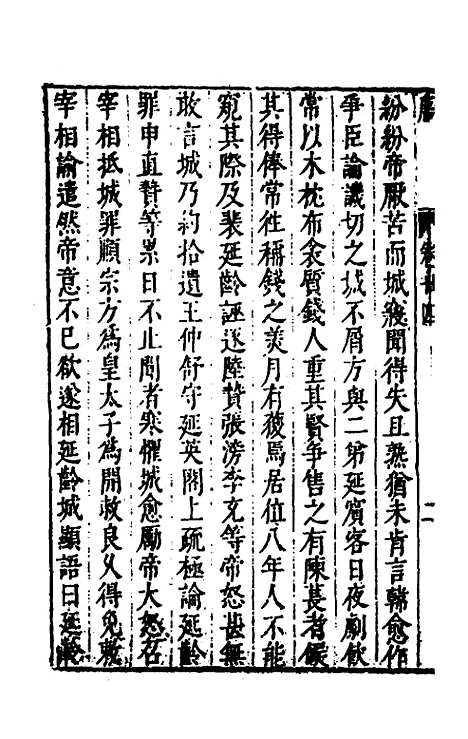 紛紛帝厭苦而城寖聞得失且熟猶未肯言韓愈作
爭臣論譏切之城不屑方與二弟延賓客日夜劇飲
常以木枕布衾質錢人重其賢爭售之有陳萇者候
其得俸常往稱錢之美月有獲焉居位八年人不能
窺其際及裴延齡誣逐陸贄張滂李充等帝怒甚無
敢言城乃約拾遺王仲舒守延英閣上疏極論延齡
罪申直贄等累日不止聞者寒懼城愈勵帝大怒召
宰相抵城罪順宗方為皇太子為開救良久得免敕
宰相論遣然帝意不已欲遂相延齡城顯語曰延齡